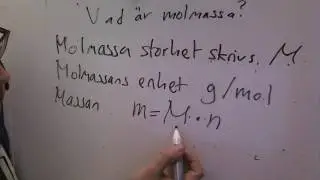 Vad är molmassa?
Molmassa storhet skrivs. M
Molmassans enhet g/mol
Massan m=M•n